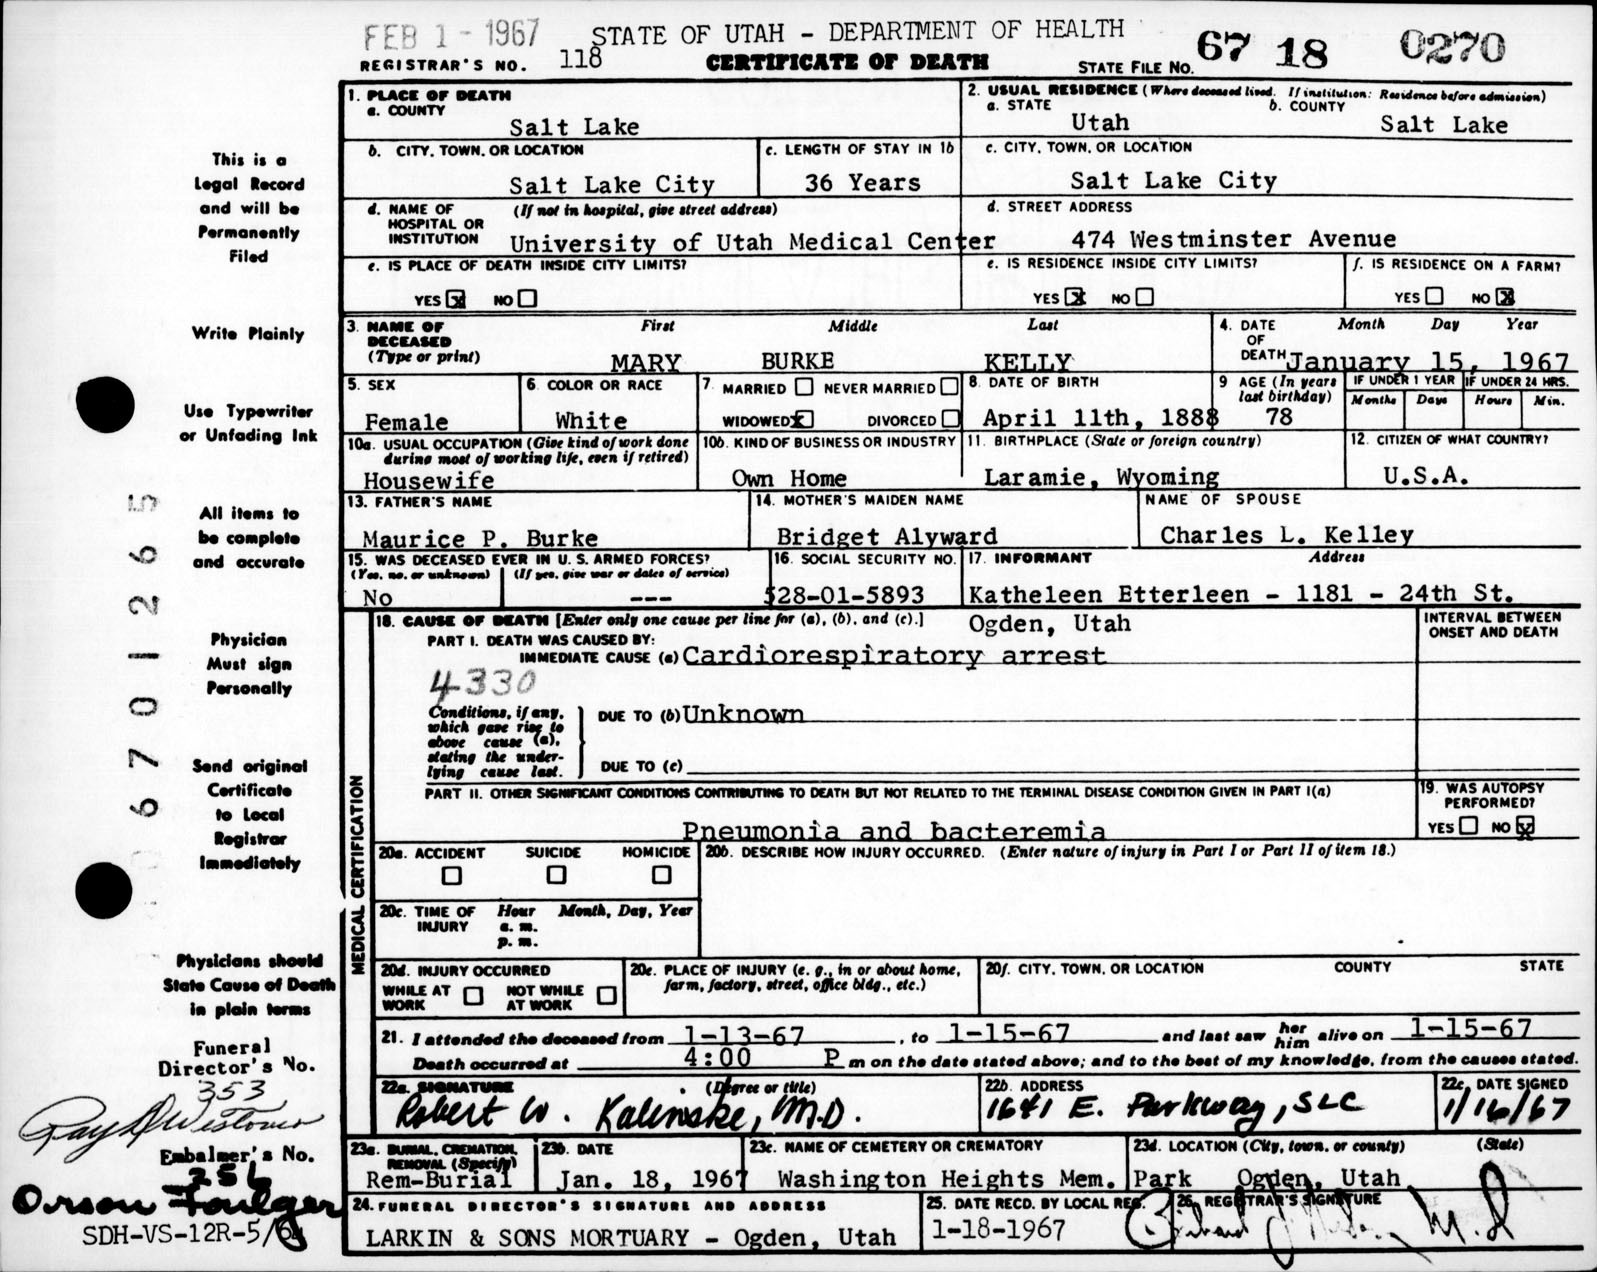 FEB 1 - 1967 STATE OF UTAH - DEPARTMENT OF HEALTH
REGISTRAR'S NO. 118 CERTIFICATE OF DEATH STATE FILE NO. 67 18 0270
1. PLACE OF DEATH
a. COUNTY
Salt Lake
2. USUAL RESIDENCE (Where deceased lived. If institution: Residence before admission)
a. STATE b. COUNTY
Utah Salt Lake
b. CITY, TOWN, OR LOCATION
Salt Lake City
c. LENGTH OF STAY IN 1b
36 Years
c. CITY, TOWN, OR LOCATION
Salt Lake City
d. NAME OF HOSPITAL OR INSTITUTION (If not in hospital, give street address)
University of Utah Medical Center
d. STREET ADDRESS
474 Westminster Avenue
e. IS PLACE OF DEATH INSIDE CITY LIMITS?
YES X NO
e. IS RESIDENCE INSIDE CITY LIMITS?
YES X NO
f. IS RESIDENCE ON A FARM?
YES NO X
3. NAME OF DECEASED (Type or print)
First Middle Last
MARY BURKE KELLY
4. DATE OF DEATH Month Day Year
January 15, 1967
5. SEX
Female
6. COLOR OR RACE
White
7. MARRIED NEVER MARRIED
WIDOWED X DIVORCED
8. DATE OF BIRTH
April 11th, 1888
9 AGE (In years last birthday)
78
IF UNDER 1 YEAR IF UNDER 24 HRS.
Months Days Hours Min.
10a. USUAL OCCUPATION (Give kind of work done during most of working life, even if retired)
Housewife
10b. KIND OF BUSINESS OR INDUSTRY
Own Home
11. BIRTHPLACE (State or foreign country)
Laramie, Wyoming
12. CITIZEN OF WHAT COUNTRY?
U.S.A.
13. FATHER'S NAME
Maurice P. Burke
14. MOTHER'S MAIDEN NAME
Bridget Alyward
NAME OF SPOUSE
Charles L. Kelley
15. WAS DECEASED EVER IN U. S. ARMED FORCES?
(Yes, no, or unknown) (If yes, give war or dates of service)
No ---
16. SOCIAL SECURITY NO.
528-01-5893
17. INFORMANT Address
Katheleen Etterleen - 1181 - 24th St.
Ogden, Utah
18. CAUSE OF DEATH [Enter only one cause per line for (a), (b), and (c).]
INTERVAL BETWEEN ONSET AND DEATH
PART I. DEATH WAS CAUSED BY:
IMMEDIATE CAUSE (a) Cardiorespiratory arrest
4330
Conditions, if any, which gave rise to above cause (a), stating the underlying cause last.
DUE TO (b) Unknown
DUE TO (c)
PART II. OTHER SIGNIFICANT CONDITIONS CONTRIBUTING TO DEATH BUT NOT RELATED TO THE TERMINAL DISEASE CONDITION GIVEN IN PART I(a)
Pneumonia and bacteremia
19. WAS AUTOPSY PERFORMED?
YES NO X
MEDICAL CERTIFICATION
20a. ACCIDENT SUICIDE HOMICIDE
20b. DESCRIBE HOW INJURY OCCURRED. (Enter nature of injury in Part I or Part II of item 18.)
20c. TIME OF INJURY Hour Month, Day, Year
a. m.
p. m.
20d. INJURY OCCURRED
WHILE AT WORK NOT WHILE AT WORK
20e. PLACE OF INJURY (e. g., in or about home, farm, factory, street, office bldg., etc.)
20f. CITY, TOWN, OR LOCATION COUNTY STATE
21. I attended the deceased from 1-13-67, to 1-15-67 and last saw her him alive on 1-15-67
Death occurred at 4:00 P m on the date stated above; and to the best of my knowledge, from the causes stated.
22a. SIGNATURE (Degree or title)
Robert W. Kalinske, M.D.
22b. ADDRESS
1641 E. Parkway, SLC
22c. DATE SIGNED
1/16/67
23a. BURIAL, CREMATION, REMOVAL (Specify)
Rem-Burial
23b. DATE
Jan. 18, 1967
23c. NAME OF CEMETERY OR CREMATORY
Washington Heights Mem. Park
23d. LOCATION (City, town, or county) (State)
Ogden, Utah
24. FUNERAL DIRECTOR'S SIGNATURE AND ADDRESS
LARKIN & SONS MORTUARY - Ogden, Utah
25. DATE RECD. BY LOCAL REG.
1-18-1967
26. REGISTRAR'S SIGNATURE
M.D.
This is a
Legal Record
and will be
Permanently
Filed
Write Plainly
Use Typewriter
or Unfading Ink
All items to
be complete
and accurate
Physician
Must sign
Personally
Send original
Certificate
to Local
Registrar
Immediately
Physicians should
State Cause of Death
in plain terms
Funeral
Director's No.
353
Ray D Westover
Embalmer's No.
256
Orson Foulger
SDH-VS-12R-5/6
6701265